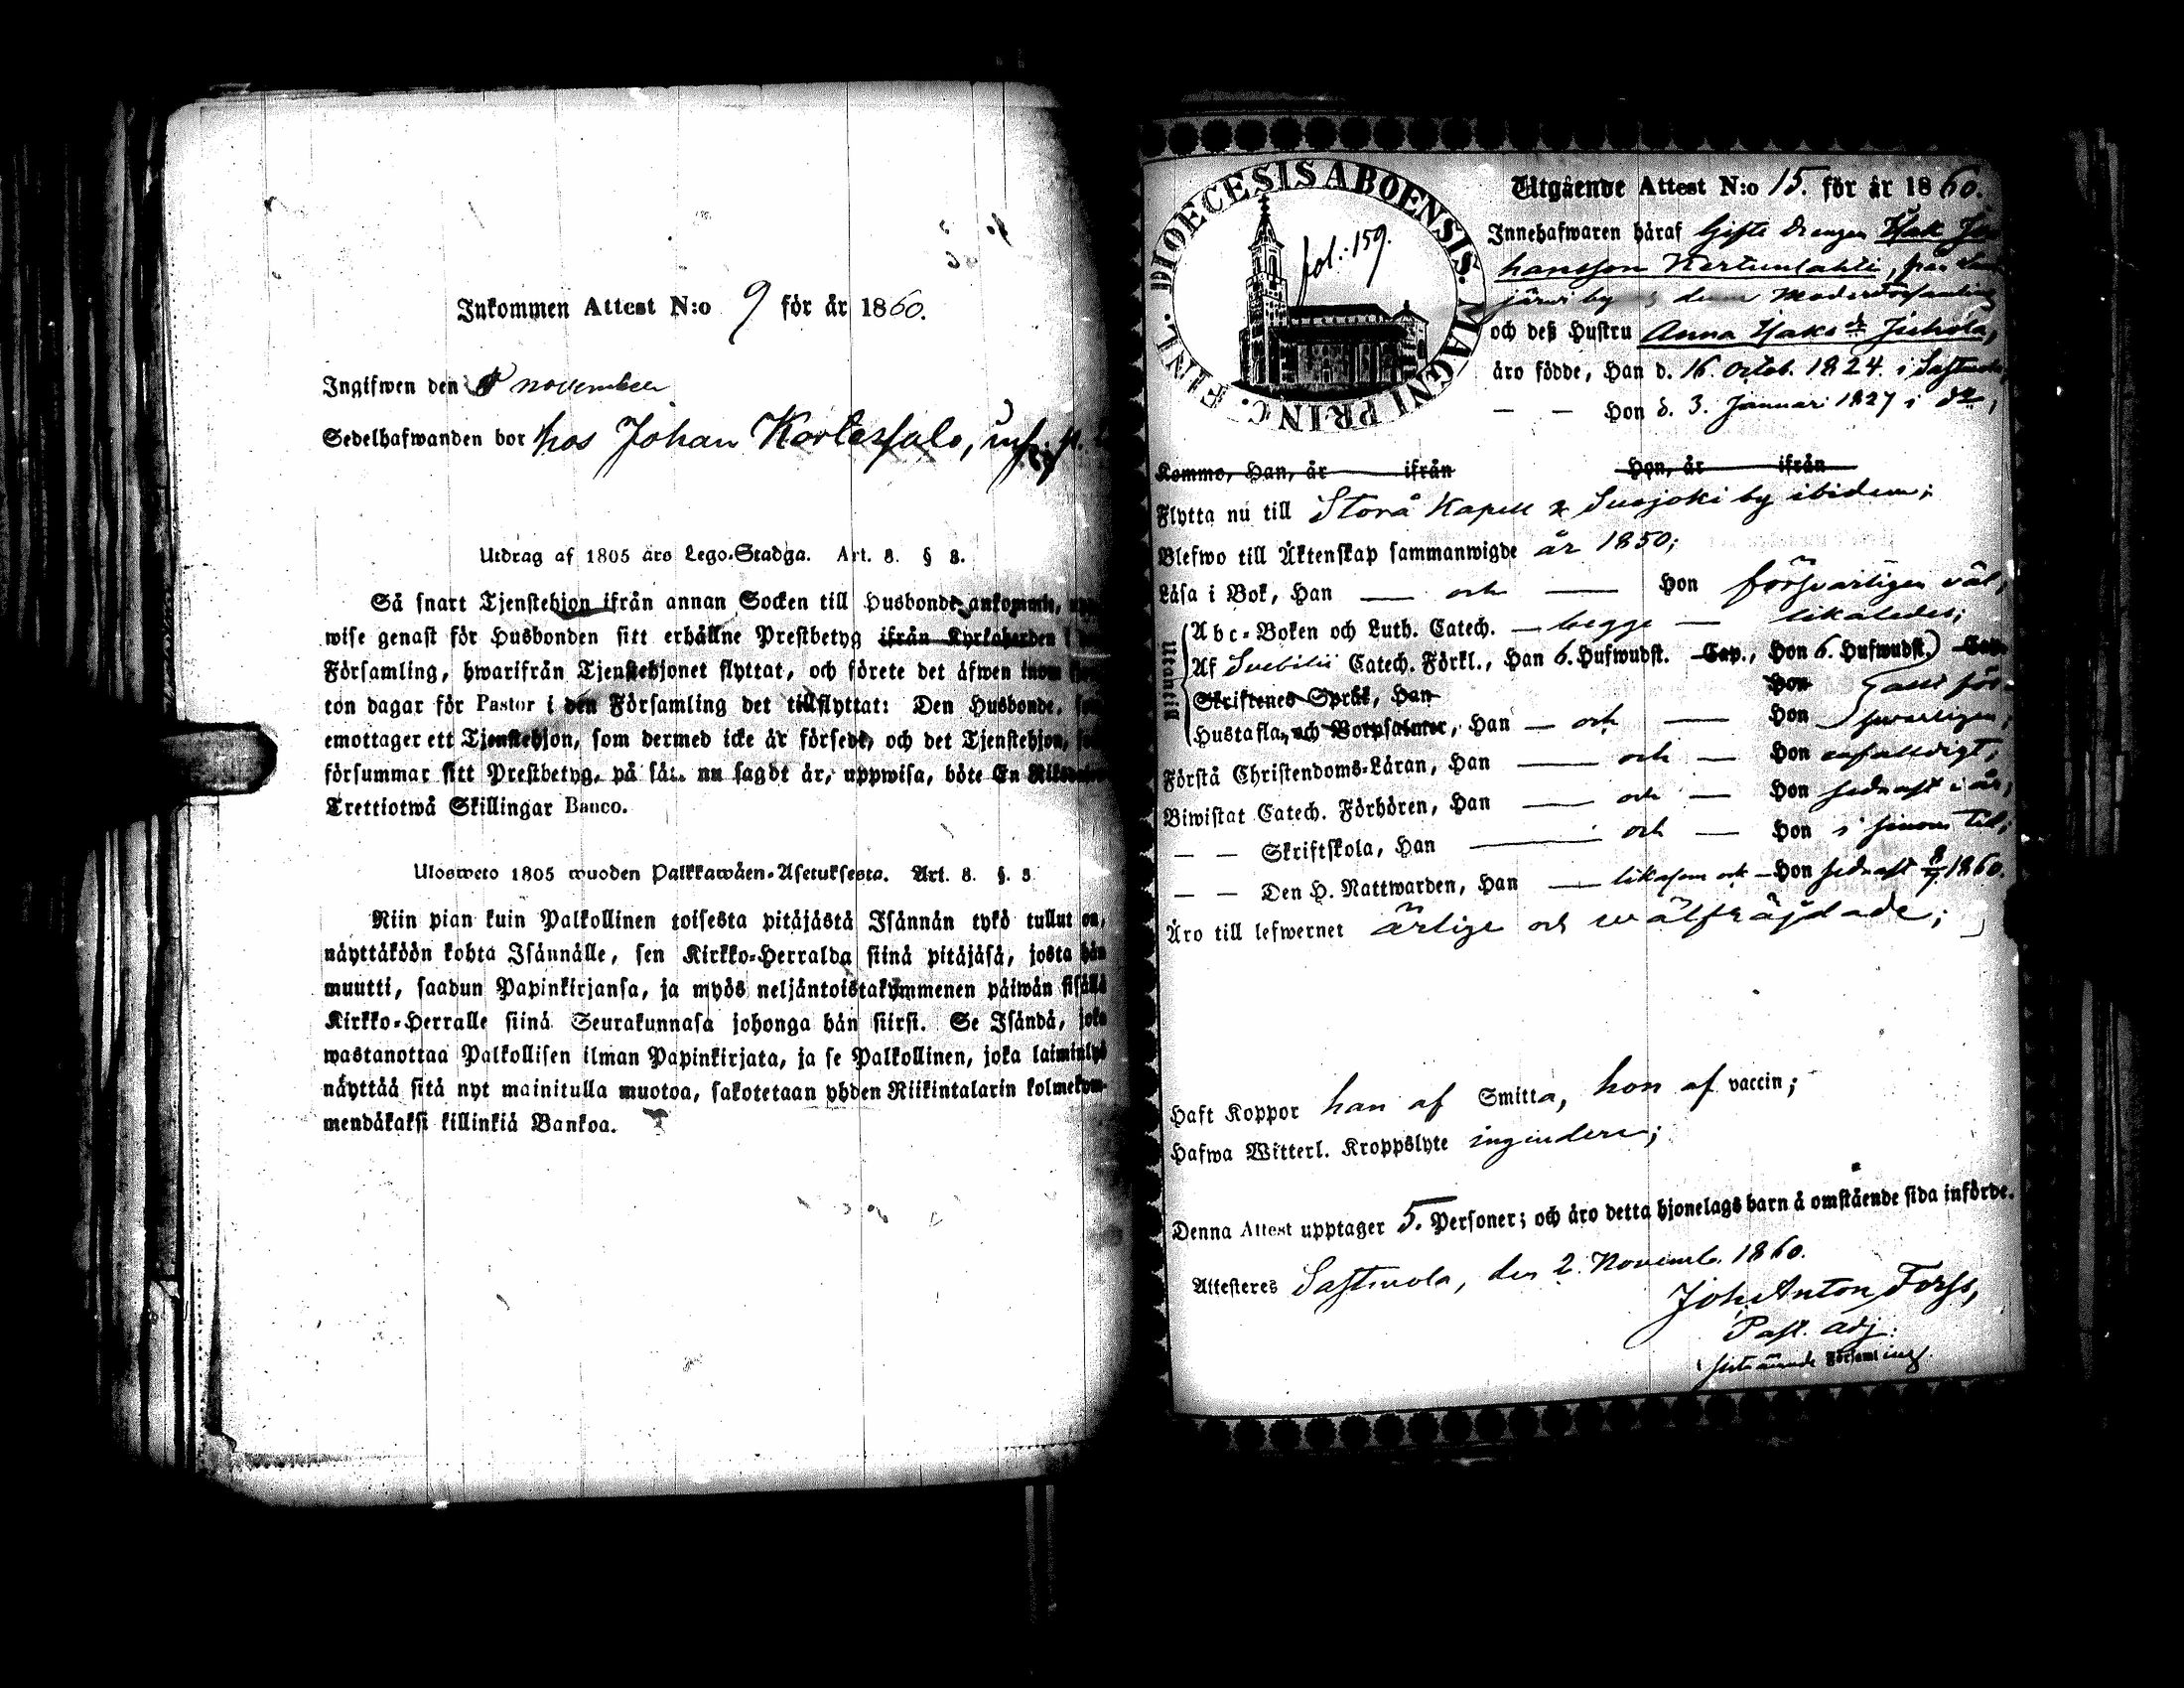 Inkommen Attest N:o 9 för år 1860.
Ingifwen den november
Sedelhafwanden bor hos Johan Kortesfalo,
Utdrag af 1805 års Lego-Stadga. Art. 8. § 8.
Så snart Tjenstehjon ifrån annan Socken till Husbonde ankommit,
wise genast för Husbonden sitt erhållne Prestbetyg ifrån Kyrkoherden i
Församling, hwarifrån Tjenstehjonet flyttat, och förete det äfwen inom
ton dagar för Pastor i den Församling det tillflyttat: Den Husbonde,
emottager ett Tjenstehjon, som dermed icke är försedt, och det Tjenstehjon,
försummar sitt Prestbetyg, på sätt nu sagdt är, uppwisa, böte En
Trettiotwå Skillingar Banco.
Ulosweto 1805 wuoden Palkkawäen-Asetuksesta. Art. 8. §. 8
Niin pian kuin Palkollinen toisesta pitäjästä Isännän tykö tullut on,
näyttäköön kohta Isännälle, sen Kirkko-Herralda siinä pitäjäsä, josta hän
muutti, saadun Papinkirjansa, ja myös neljäntoistakymmenen päiwän sisällä
Kirkko-Herralle siinä Seurakunnasa johonga hän siirsi. Se Isändä, joka
wastanottaa Palkollisen ilman Papinkirjata, ja se Palkollinen, joka laiminlyö
näyttää sitä nyt mainitulla muotoa, sakotetaan yhden Riikintalarin kolmekym-
mendäkaksi killinkiä Bankoa.
DIOECESIS ABOENSIS. MAGNI PRINC. FINL.
fol: 159.
Utgående Attest N:o 15. för år 1860.
Innehafwaren häraf Gifte drengen Isak Jo
hansson Kertunlahti, från
järwi by
och deß Hustru Anna Isaks dr
äro födde, Han d. 16. Octob. 1824. i
— — Hon d. 3. Januari 1827 i do,
Komme, Han, år ifrån Hon, år ifrån
Flytta nu till Storå Kapell & Suojoki by ibidem;
Blefwo till Äktenskap sammanwigde år 1850;
Läsa i Bok, Han — och — Hon försvarligen väl;
Utantill
Abc-Boken och Luth. Catech. — begge — likaledes;
Af Svebilii Catech. Förkl., Han 6. Hufwudst. Cap., Hon 6. Hufwudst. Cap.
Skriftenes Språk, Han Hon
Hustafla, och Botpsalmer, Han — och — Hon
Förstå Christendoms-Läran, Han — och — Hon enfalldigt;
Biwistat Catech. Förhören, Han — och — Hon sednast i år;
— — Skriftskola, Han — och — Hon i sinom tid;
— — Den H. Nattwarden, Han — likasom och — Hon sednast 1860.
Äro till lefwernet ärlige och wälfräjdade;
Haft Koppor han af Smitta, hon af vaccin;
Hafwa Witterl. Kroppslyte ingendera;
Denna Attest upptager 5. Personer; och äro detta hjonelags barn å omstående sida införde.
Attesteres Sastmola, den 2. Novemb. 1860.
Joh. Anton Forss,
Past. adj.
Församling.